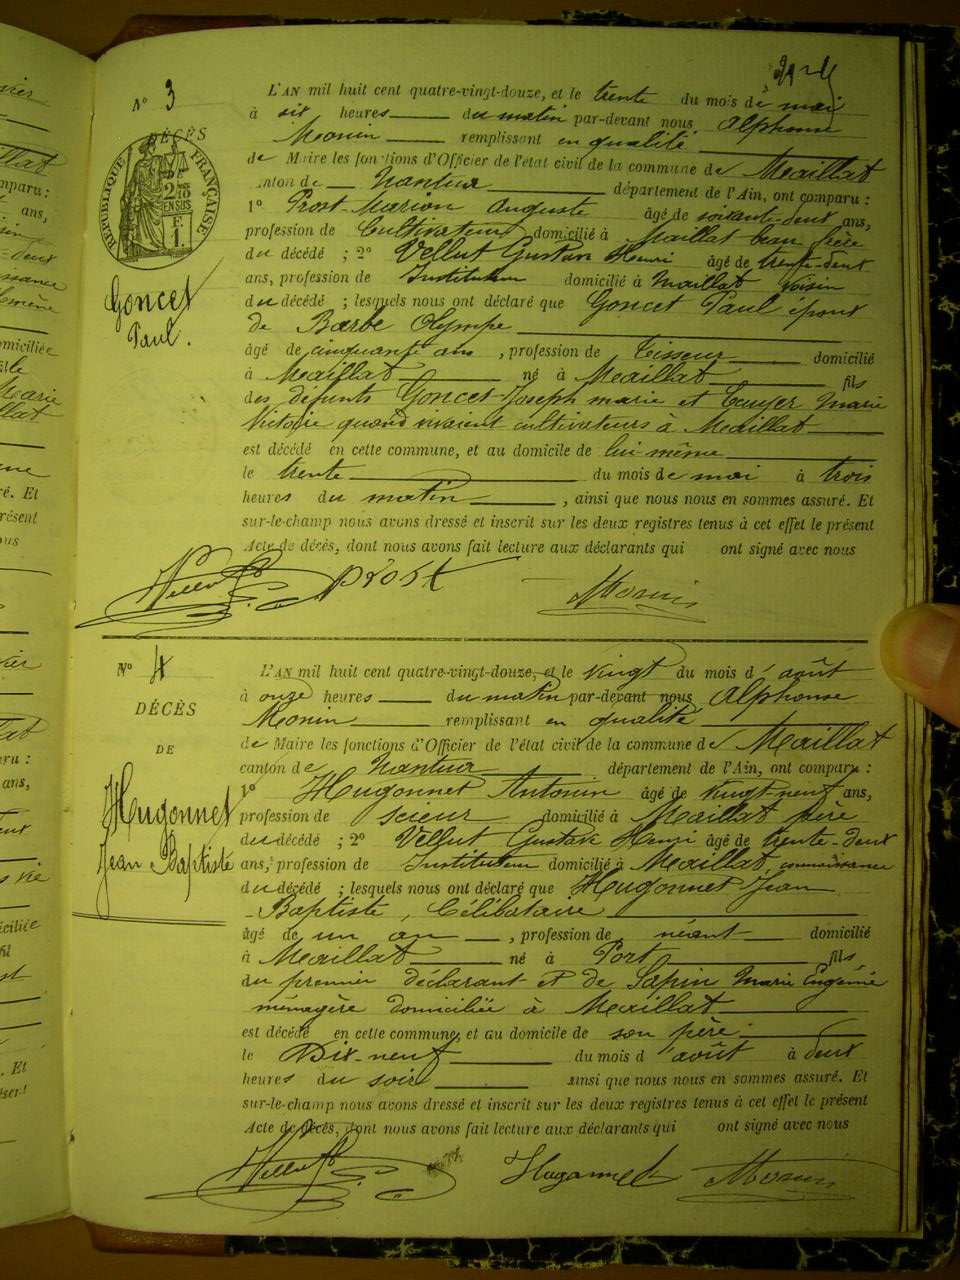 N° 3
DÉCÈS
RÉPUBLIQUE FRANÇAISE
Goncet
Paul.
L'AN mil huit cent quatre-vingt-douze, et le trente du mois de mai
à six heures du matin par-devant nous Alphonse
Monin remplissant en qualité
de Maire les fonctions d'Officier de l'état civil de la commune de Maillat
anton de Nantua département de l'Ain, ont comparu :
1° Prost-Marion Auguste âgé de soixante-deux ans,
profession de Cultivateur domicilié à Maillat beau frère
du décédé ; 2° Vellut Gustave Henri âgé de trente-deux
ans, profession de Instituteur domicilié à Maillat voisin
du décédé ; lesquels nous ont déclaré que Goncet Paul époux
de Barbe Olympe
âgé de cinquante ans , profession de Tisseur domicilié
à Maillat né à Maillat fils
des défunts Goncet Joseph marie et Marie
Victoire quand vivaient cultivateurs à Maillat
est décédé en cette commune, et au domicile de lui-même
le trente du mois de mai à trois
heures du matin , ainsi que nous nous en sommes assuré. Et
sur-le-champ nous avons dressé et inscrit sur les deux registres tenus à cet effet le présent
Acte de décès, dont nous avons fait lecture aux déclarants qui ont signé avec nous
Vellut prost Monin
N° 4
DÉCÈS
DE
Hugonnet
Jean Baptiste
L'AN mil huit cent quatre-vingt-douze, et le vingt du mois d'août
à onze heures du matin par-devant nous Alphonse
Monin remplissant en qualité
de Maire les fonctions d'Officier de l'état civil de la commune de Maillat
canton de Nantua département de l'Ain, ont comparu :
1° Hugonnet Antonin âgé de vingt-neuf ans,
profession de scieur domicilié à Maillat père
du décédé ; 2° Vellut Gustave Henri âgé de trente-deux
ans, profession de Instituteur domicilié à Maillat, connaissance
du décédé ; lesquels nous ont déclaré que Hugonnet Jean
-Baptiste, Célibataire
âgé de un an , profession de néant domicilié
à Maillat né à Port fils
du premier déclarant et de Sapin Marie Eugénie
ménagère domiciliée à Maillat
est décédé en cette commune, et au domicile de son père
le Dix-neuf du mois d'août à deux
heures du soir ainsi que nous nous en sommes assuré. Et
sur-le-champ nous avons dressé et inscrit sur les deux registres tenus à cet effet le présent
Acte de décès, dont nous avons fait lecture aux déclarants qui ont signé avec nous
Vellut Hugonnet Monin